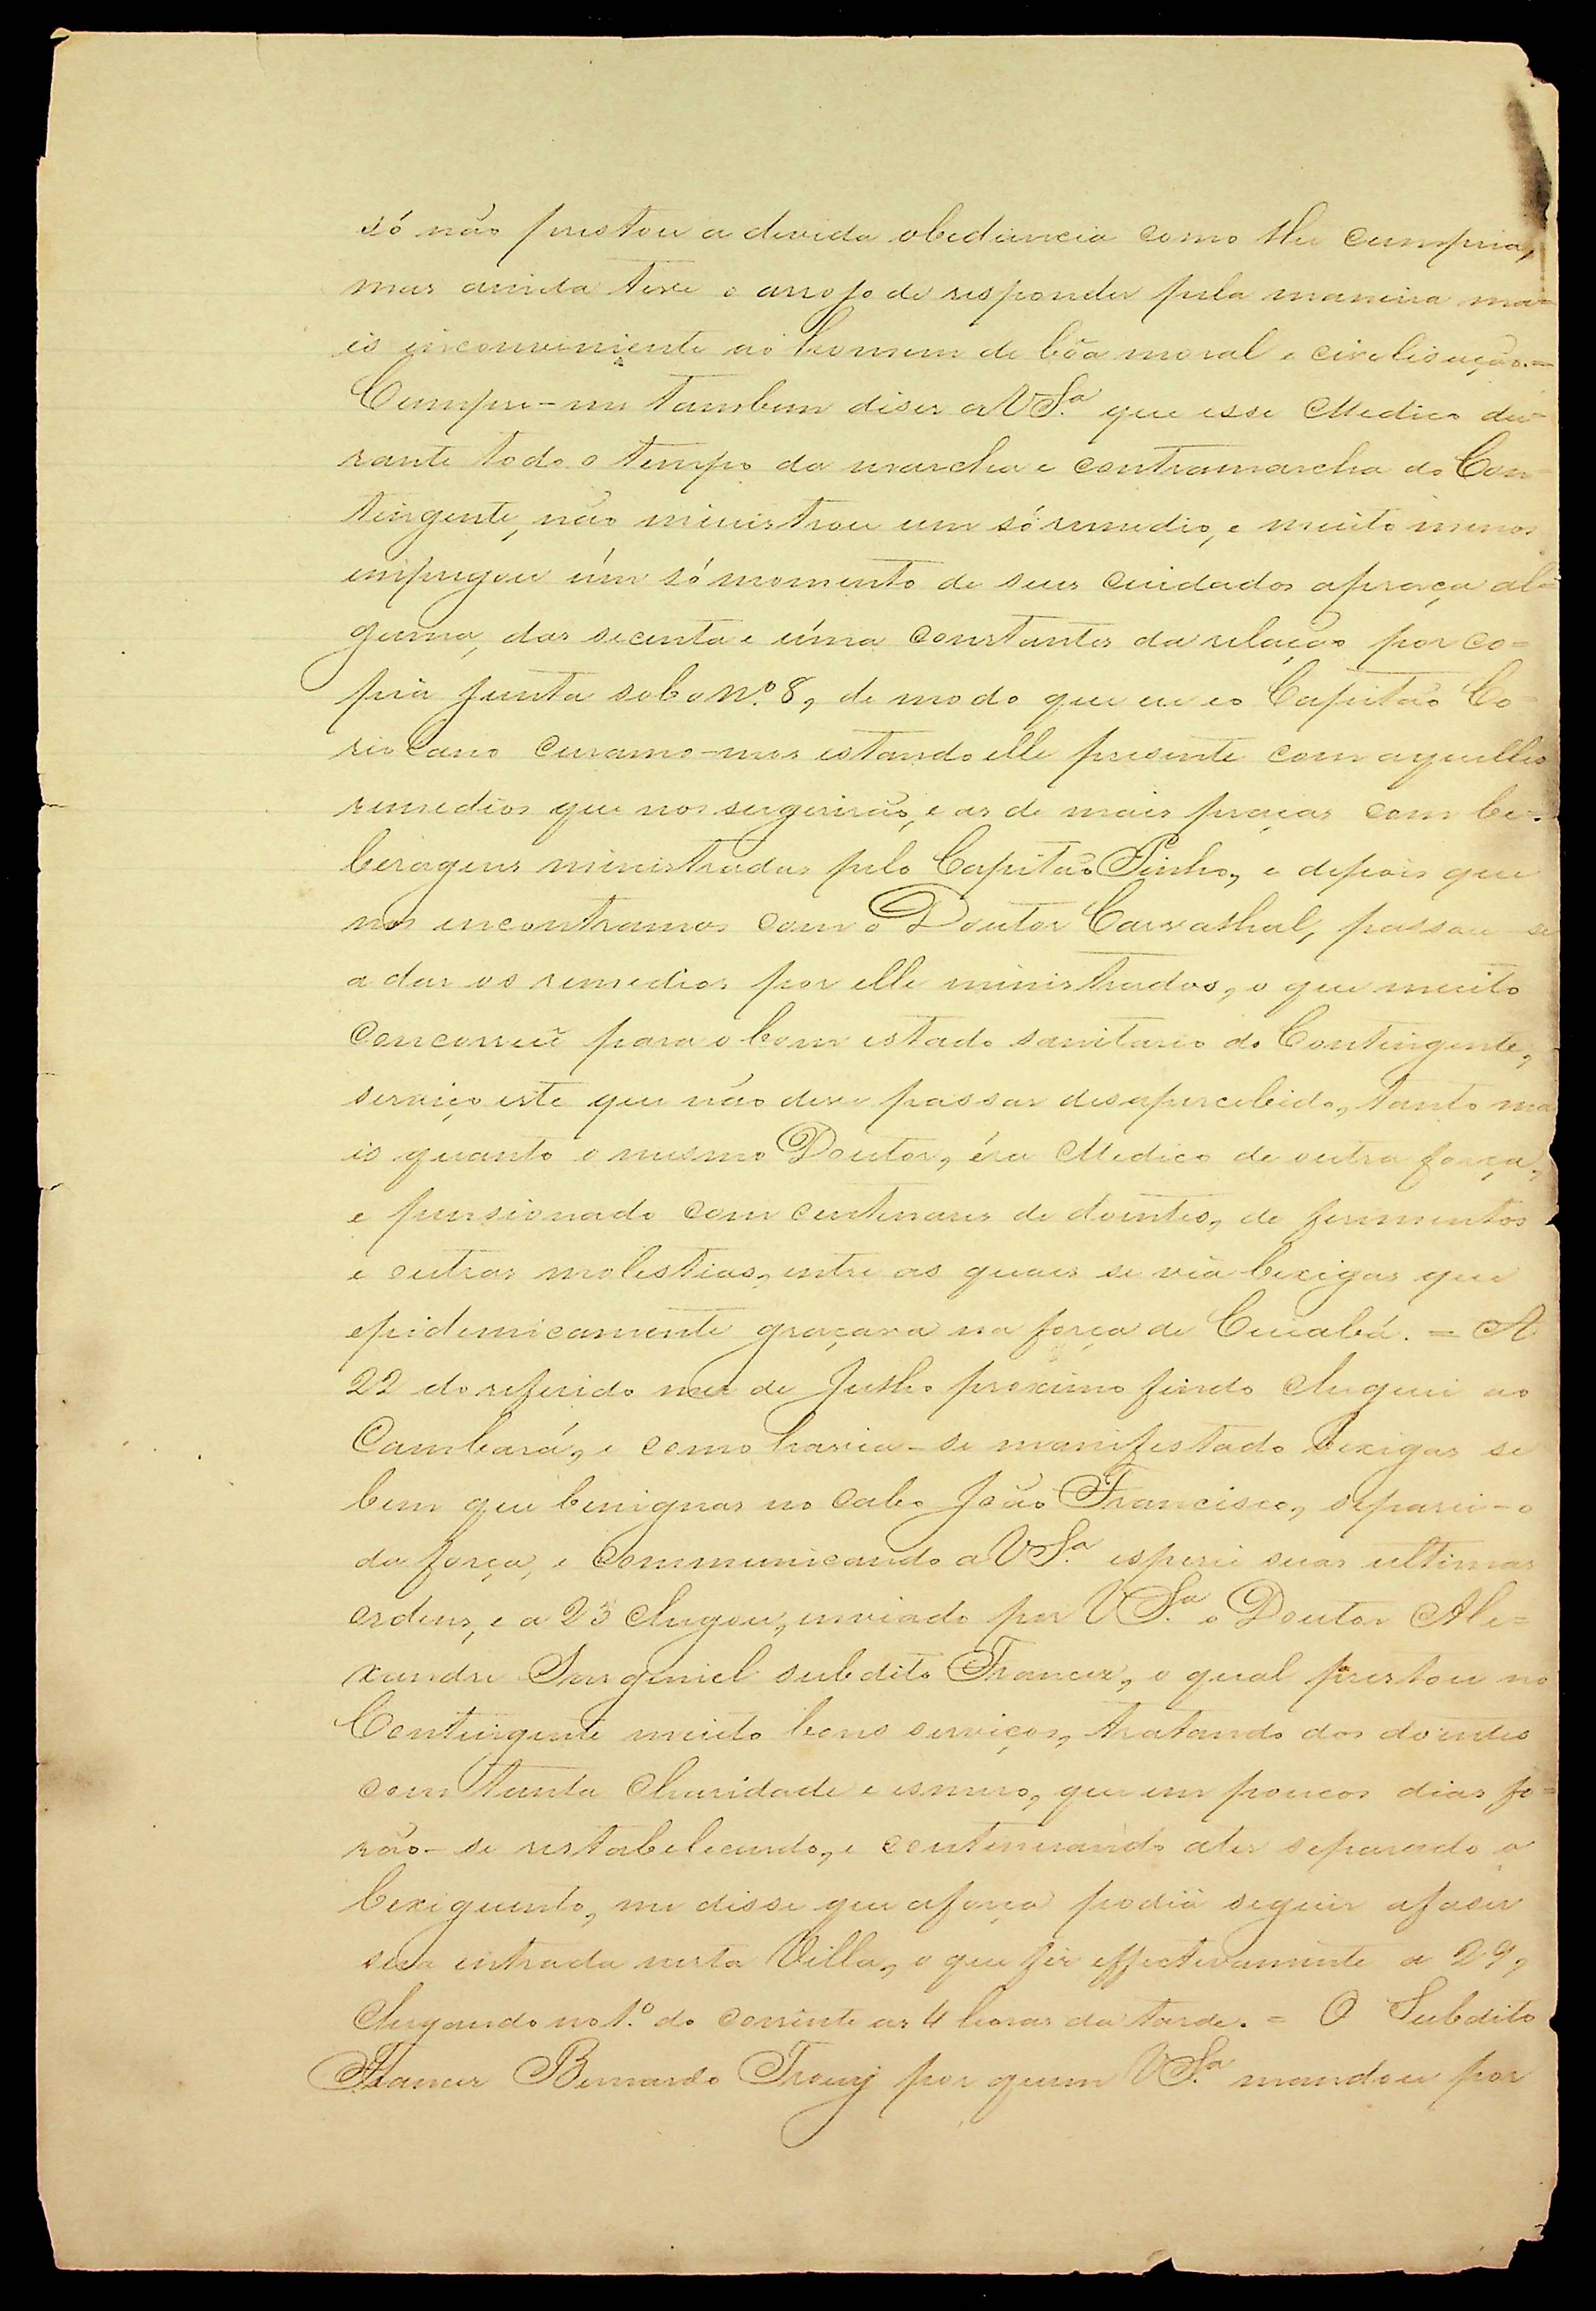 só não prestou a devida obediencia como lhe cumpria,
mas ainda teve o arrojo de responder pela maneira ma=
is inconveniente ao homem de bôa moral e civelisação.=
Cumpre-me tambem diser a VSª que esse Medico du=
rante todo o tempo da marcha e contramarcha do Con=
tingente, não ministrou um só remedio, e muito menos
empregou úm só momento de seus cuidados a praça al=
guma, das secenta e úma constantes da relação por co=
pia junta sob o Nº 8, de modo que eu e o Capitão Co=
riolano curamo-nos estando elle presente com aquelles
remedios que nos sugerirão, e as de mais praças com be=
beragens ministradas pelo Capitão Pinho, e depois que
nos encontramos com o Doutor Carvalhal, passou-se
a dar os remedios por elle ministrados, o que muito
concorreu para o bom estado sanitario do Contingente,
serviço este que não deve passar desapercebido, tanto ma
is quanto o mesmo Doutor, éra Medico de outra força,
e pensionado com centenares de doentes, de ferimentos
e outras molestias, entre as quaes se via bexigas que
epidemicamente graçava na força de Cuiabá. = A
22 do referido mez de Julho proximo findo cheguei ao
Cambará, e como havia-se manifestado bexigas se
bem que benignas no cabo João Francisco, separei-o
da força, e communicando a VSª esperei suas ultimas
ordens, e a 23 chegou, enviado por VSª o Doutor Ale=
xandre subdito Francez, o qual prestou no
Contingente muito bons serviços, tratando dos doentes
com tanta charidade e esmero, que em poucos dias fo=
rão-se restabelecendo, e continuando a ter separado o
bexiguento, me disse que a força podia seguir a faser
sua entrada nesta Villa, o que fiz effectivamente a 29,
chegando no 1º do corrente as 4 horas da tarde. = O Subdito
Francez Bernardo por quem VSª mandou por